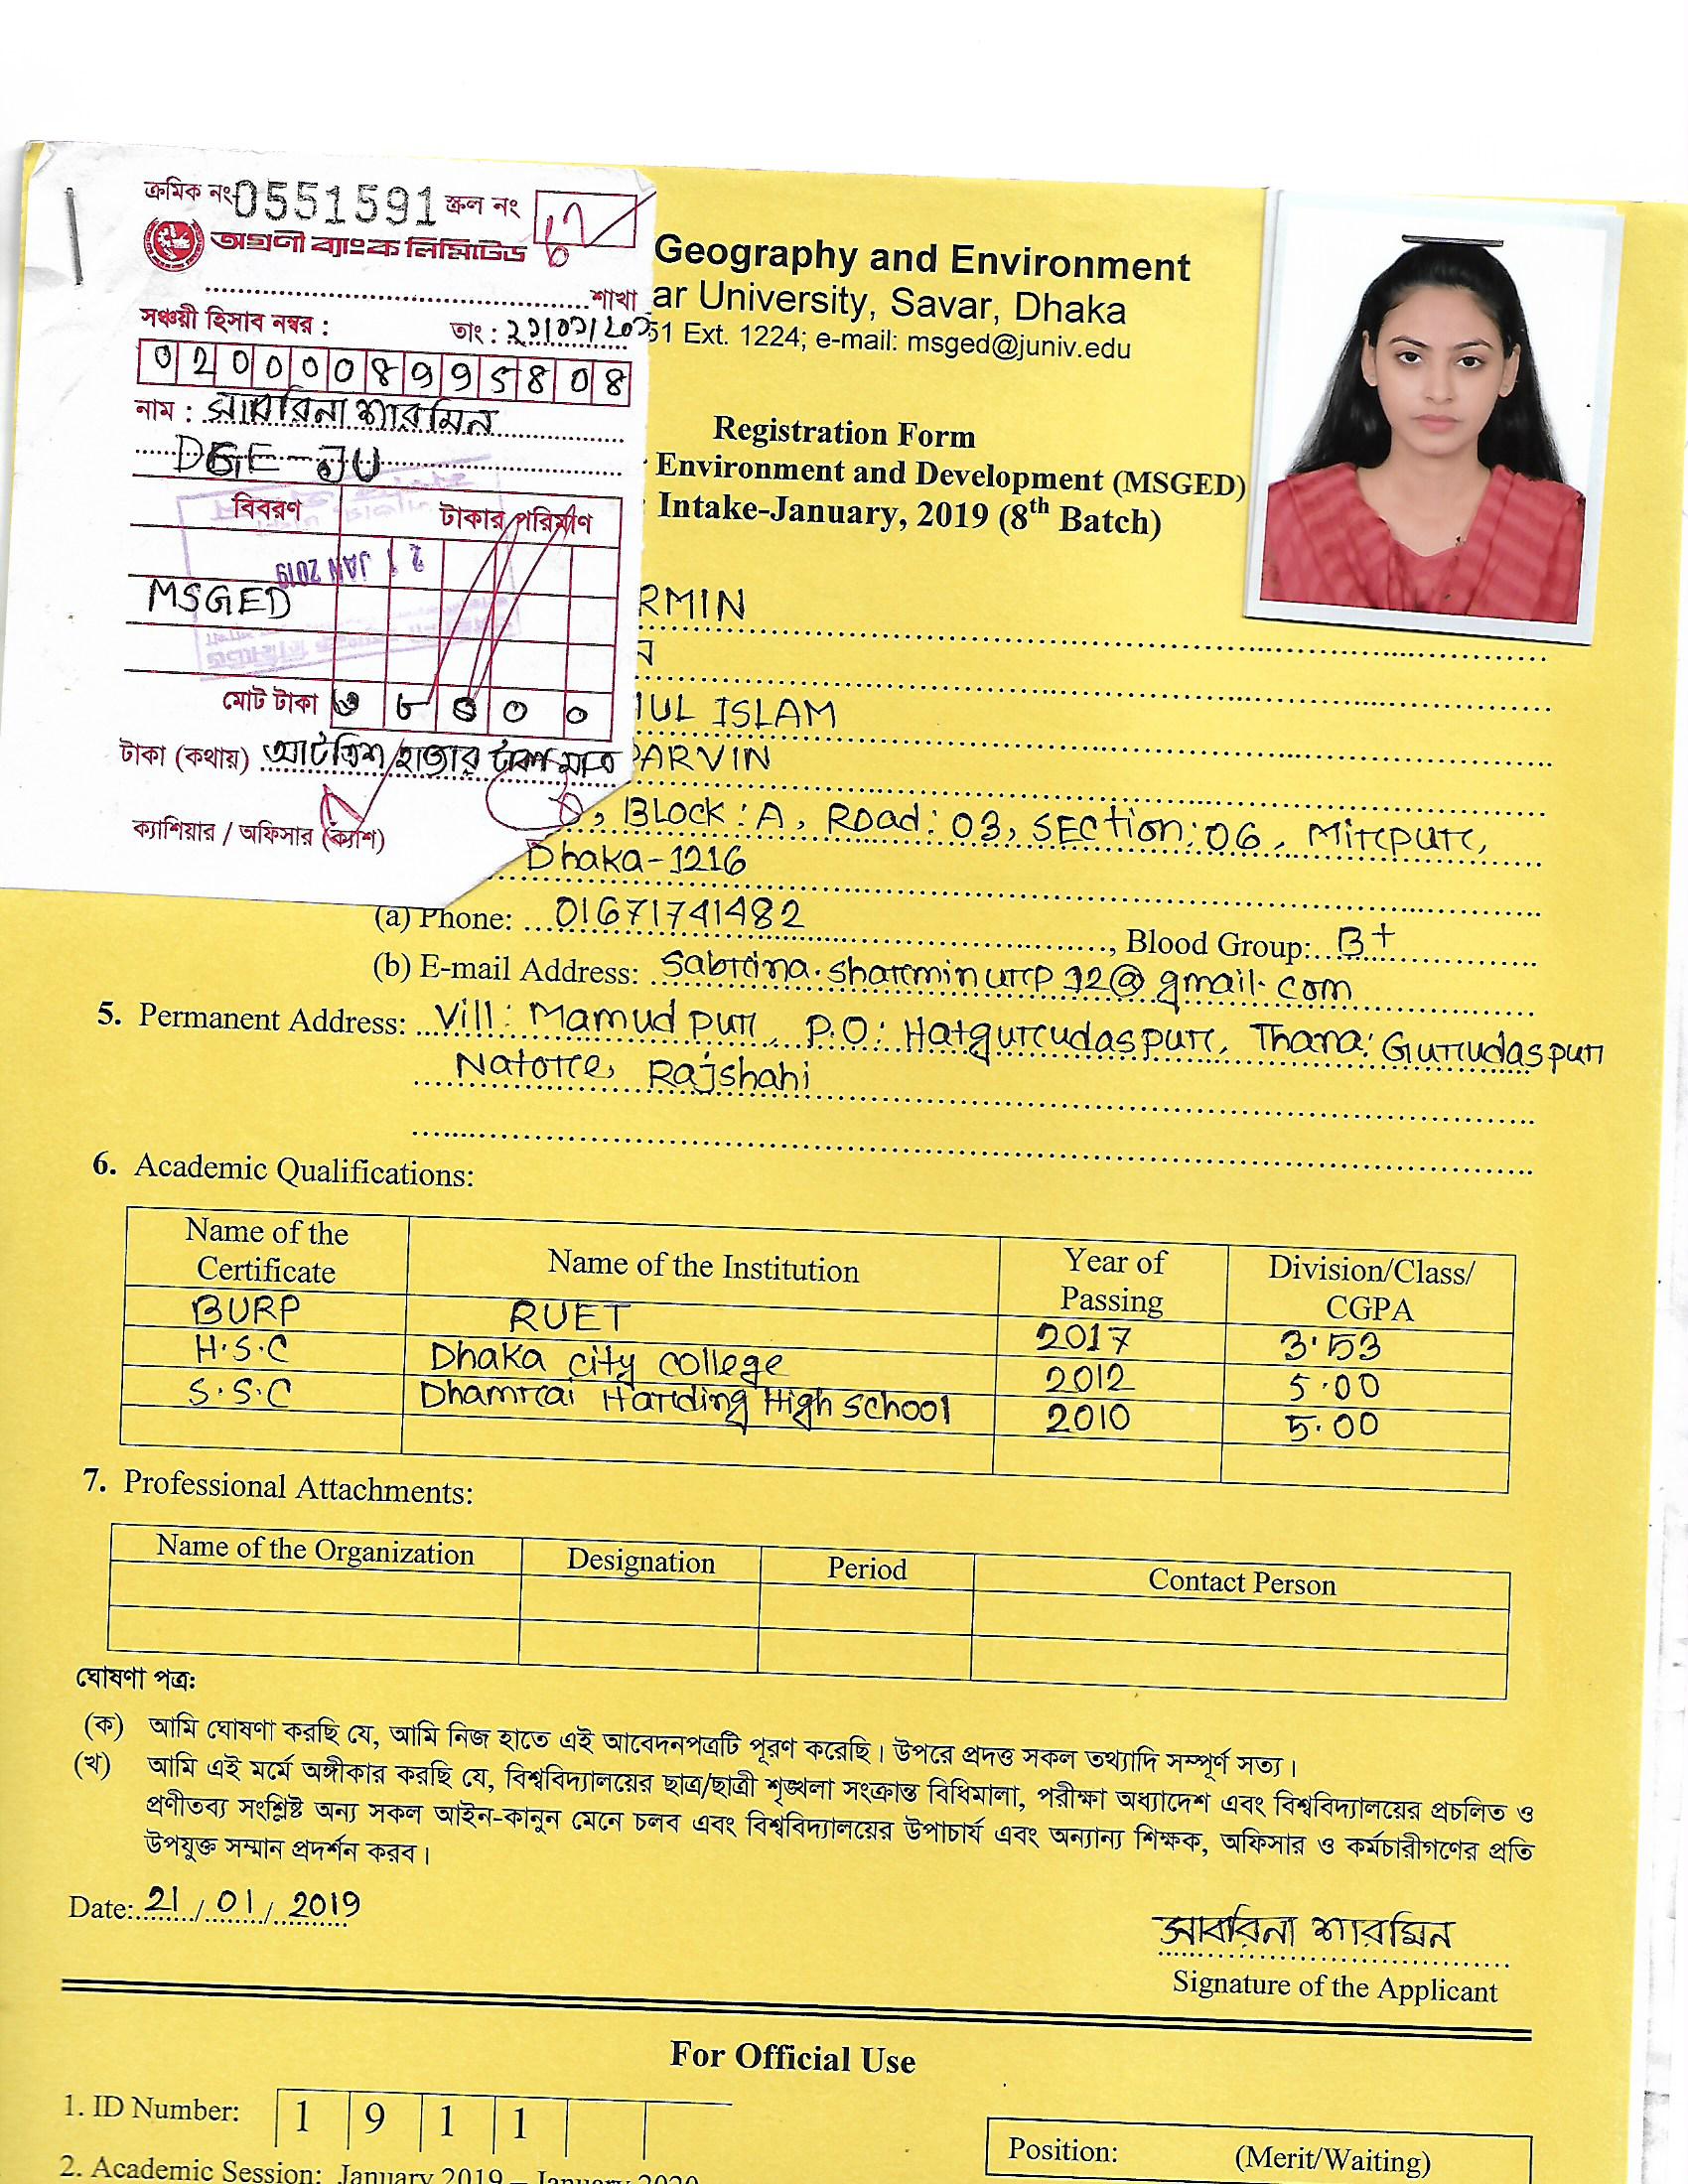 ক্রমিক নং 0551591 স্ক্রল নং
অগ্রণী ব্যাংক লিমিটেড
শাখা
সঞ্চয়ী হিসাব নম্বর : তাং :
0200008995808
নাম : সাবরিনা শারমিন
DGE-JU
বিবরণ টাকার পরিমাণ
21 JAN 2019
MSGED
মোট টাকা ৩৮০০০
টাকা (কথায়) আটত্রিশ হাজার টাকা মাত্র
ক্যাশিয়ার / অফিসার (ক্যাশ)
Geography and Environment
ar University, Savar, Dhaka
51 Ext. 1224; e-mail: msged@juniv.edu
Registration Form
Environment and Development (MSGED)
Intake-January, 2019 (8th Batch)
RMIN
ন
UL ISLAM
PARVIN
Block: A, Road: 03, Section: 06, Mirpur,
Dhaka-1216
(a) Phone: 01671741482, Blood Group: B+
(b) E-mail Address: sabrina.sharminurp12@gmail.com
5. Permanent Address: Vill: Mamudpur, P.O: Hatgurudaspur, Thana: Gurudaspur
Natore, Rajshahi
6. Academic Qualifications:
Name of the Certificate Name of the Institution Year of Passing Division/Class/ CGPA
BURP RUET 2017 3.53
H.S.C Dhaka city college 2012 5.00
S.S.C Dhamrai Harding High School 2010 5.00
7. Professional Attachments:
Name of the Organization Designation Period Contact Person
ঘোষণা পত্র:
(ক) আমি ঘোষণা করছি যে, আমি নিজ হাতে এই আবেদনপত্রটি পূরণ করেছি। উপরে প্রদত্ত সকল তথ্যাদি সম্পূর্ণ সত্য।
(খ) আমি এই মর্মে অঙ্গীকার করছি যে, বিশ্ববিদ্যালয়ের ছাত্র/ছাত্রী শৃঙ্খলা সংক্রান্ত বিধিমালা, পরীক্ষা অধ্যাদেশ এবং বিশ্ববিদ্যালয়ের প্রচলিত ও
প্রণীতব্য সংশ্লিষ্ট অন্য সকল আইন-কানুন মেনে চলব এবং বিশ্ববিদ্যালয়ের উপাচার্য এবং অন্যান্য শিক্ষক, অফিসার ও কর্মচারীগণের প্রতি
উপযুক্ত সম্মান প্রদর্শন করব।
Date: 21/01/2019
সাবরিনা শারমিন
Signature of the Applicant
For Official Use
1. ID Number: 1 9 1 1
Position: (Merit/Waiting)
2. Academic Session: January 2019 – January 2020